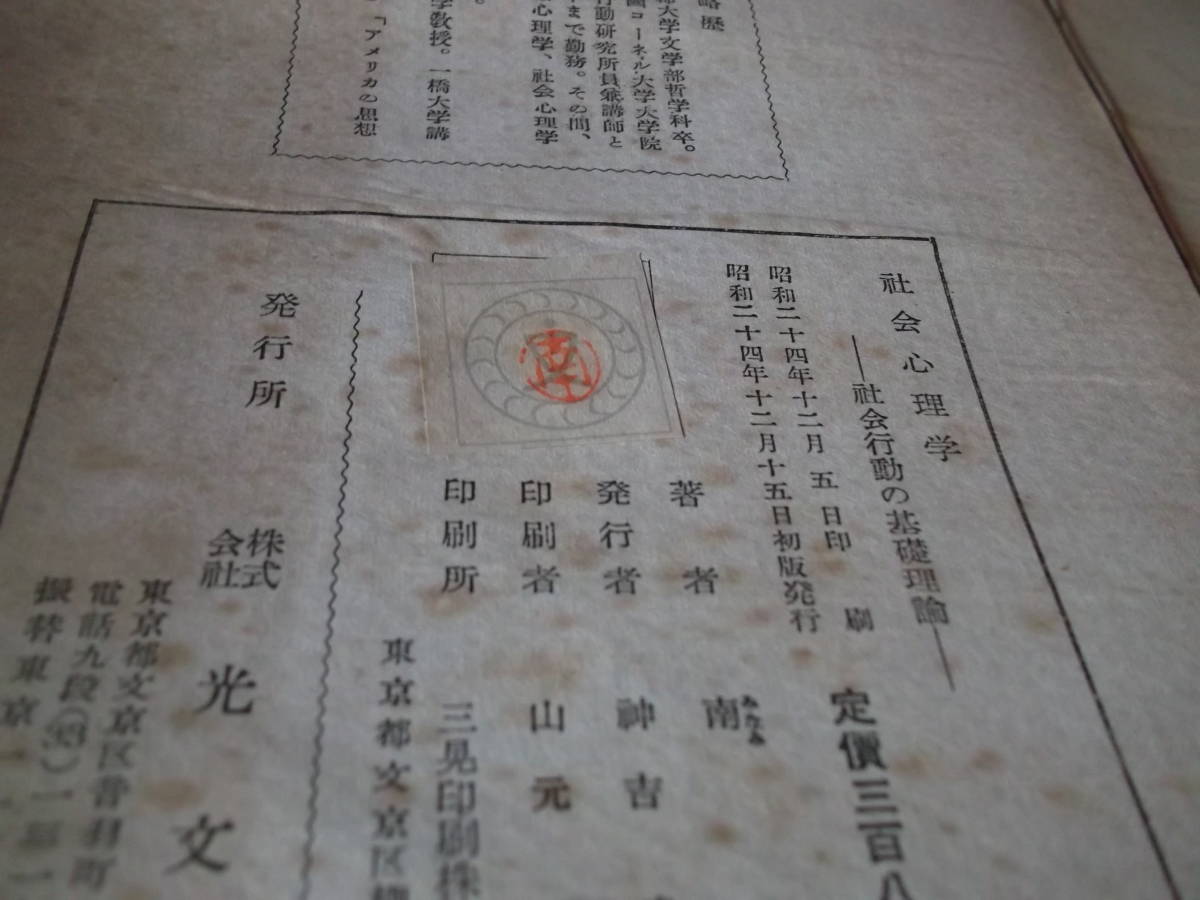 略歴
大学文学部哲学科卒。
國コーネル大学大学院
行動研究所員兼講師と
まで勤務。その間、
心理学、社会心理学
。
学教授。一橋大学講
「アメリカの思想
社会心理学
―社会行動の基礎理論―
定價三百八
昭和二十四年十二月五日印刷
昭和二十四年十二月十五日初版発行
著者 南
みなみ
発行者 神吉
印刷者 山元
印刷所 三晃印刷株
東京都文京区
南
発行所 株式会社 光文
東京都文京区音羽町
電話九段(33)一
振替東京